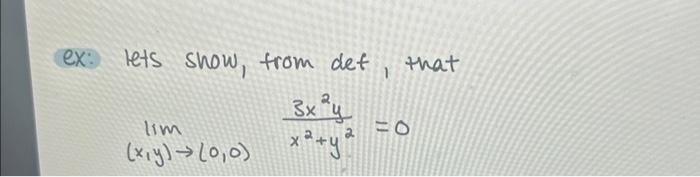 ex: lets show, from def, that
lim (x,y)→(0,0) 3x²y / x²+y² = 0